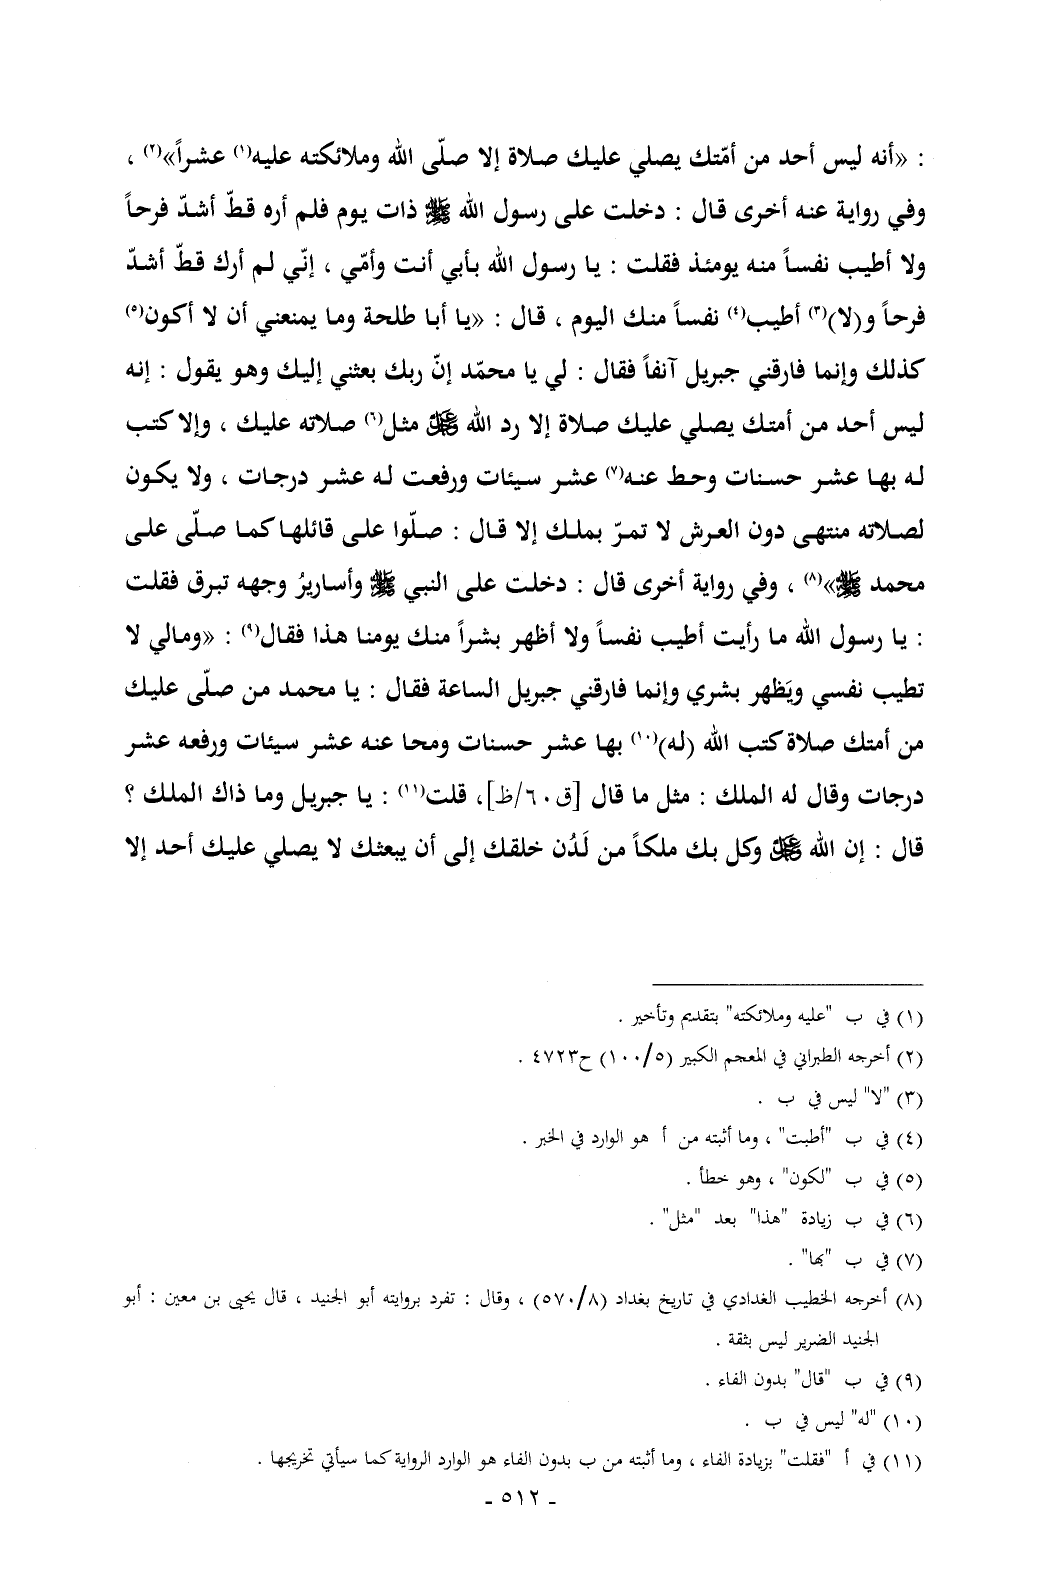 : «أنه ليس أحد من أمّتك يصلي عليك صلاة إلا صلّى الله وملائكته عليه(١) عشراً»(٢) ،
وفي رواية عنه أخرى قال : دخلت على رسول الله ﷺ ذات يوم فلم أره قطّ أشدّ فرحاً
ولا أطيب نفساً منه يومئذ فقلت : يا رسول الله بأبي أنت وأمّي ، إنّي لم أرك قطّ أشدّ
فرحاً و(لا)(٣) أطيب(٤) نفساً منك اليوم ، قال : «يا أبا طلحة وما يمنعني أن لا أكون(٥)
كذلك وإنما فارقني جبريل آنفاً فقال : لي يا محمّد إنّ ربك بعثني إليك وهو يقول : إنه
ليس أحد من أمتك يصلي عليك صلاة إلا رد الله ﷻ مثل(٦) صلاته عليك ، وإلا كتب
له بها عشر حسنات وحط عنه(٧) عشر سيئات ورفعت له عشر درجات ، ولا يكون
لصلاته منتهى دون العرش لا تمرّ بملك إلا قال : صلّوا على قائلها كما صلّى على
محمد ﷺ»(٨) ، وفي رواية أخرى قال : دخلت على النبي ﷺ وأساريرُ وجهه تبرق فقلت
: يا رسول الله ما رأيت أطيب نفساً ولا أظهر بشراً منك يومنا هذا فقال(٩) : «ومالي لا
تطيب نفسي ويَظهر بشري وإنما فارقني جبريل الساعة فقال : يا محمد من صلّى عليك
من أمتك صلاة كتب الله (له)(١٠) بها عشر حسنات ومحا عنه عشر سيئات ورفعه عشر
درجات وقال له الملك : مثل ما قال [ق٦٠/ظ]، قلت(١١) : يا جبريل وما ذاك الملك ؟
قال : إن الله ﷻ وكل بك ملكاً من لَدُن خلقك إلى أن يبعثك لا يصلي عليك أحد إلا
(١) في ب "عليه وملائكته" بتقديم وتأخير .
(٢) أخرجه الطبراني في المعجم الكبير (١٠٠/٥) ح٤٧٢٣ .
(٣) "لا" ليس في ب .
(٤) في ب "أطبت" ، وما أثبته من أ هو الوارد في الخبر .
(٥) في ب "لكون" ، وهو خطأ .
(٦) في ب زيادة "هذا" بعد "مثل" .
(٧) في ب "بها" .
(٨) أخرجه الخطيب الغدادي في تاريخ بغداد (٥٧٠/٨) ، وقال : تفرد بروايته أبو الجنيد ، قال يحيى بن معين : أبو
الجنيد الضرير ليس بثقة .
(٩) في ب "قال" بدون الفاء .
(١٠) "له" ليس في ب .
(١١) في أ "فقلت" بزيادة الفاء ، وما أثبته من ب بدون الفاء هو الوارد الرواية كما سيأتي تخريجها .
- ٥١٢ -